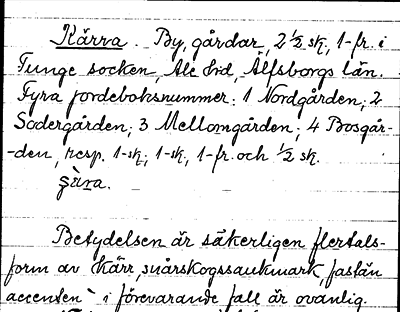 Kärra. By, gårdar, 2 ½ sk, 1-fr. i
Tunge socken, Ale hd, Älfsborgs län.
Fyra jordeboksnummer: 1 Nordgården; 2
Södergården; 3 Mellomgården; 4 Bosgår-
-den, resp. 1-sk; 1-sk, 1-fr. och ½ sk.
Betydelsen är säkerligen flertals-
form av kärr, snårskogssankmark, fastän
accenten ` i förevarande fall är ovanlig.